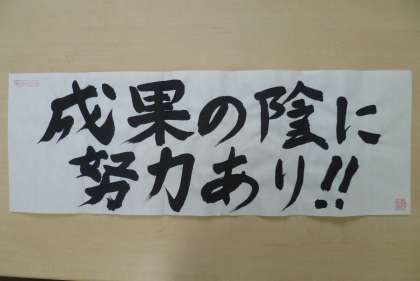 成果の陰に
努力あり!!